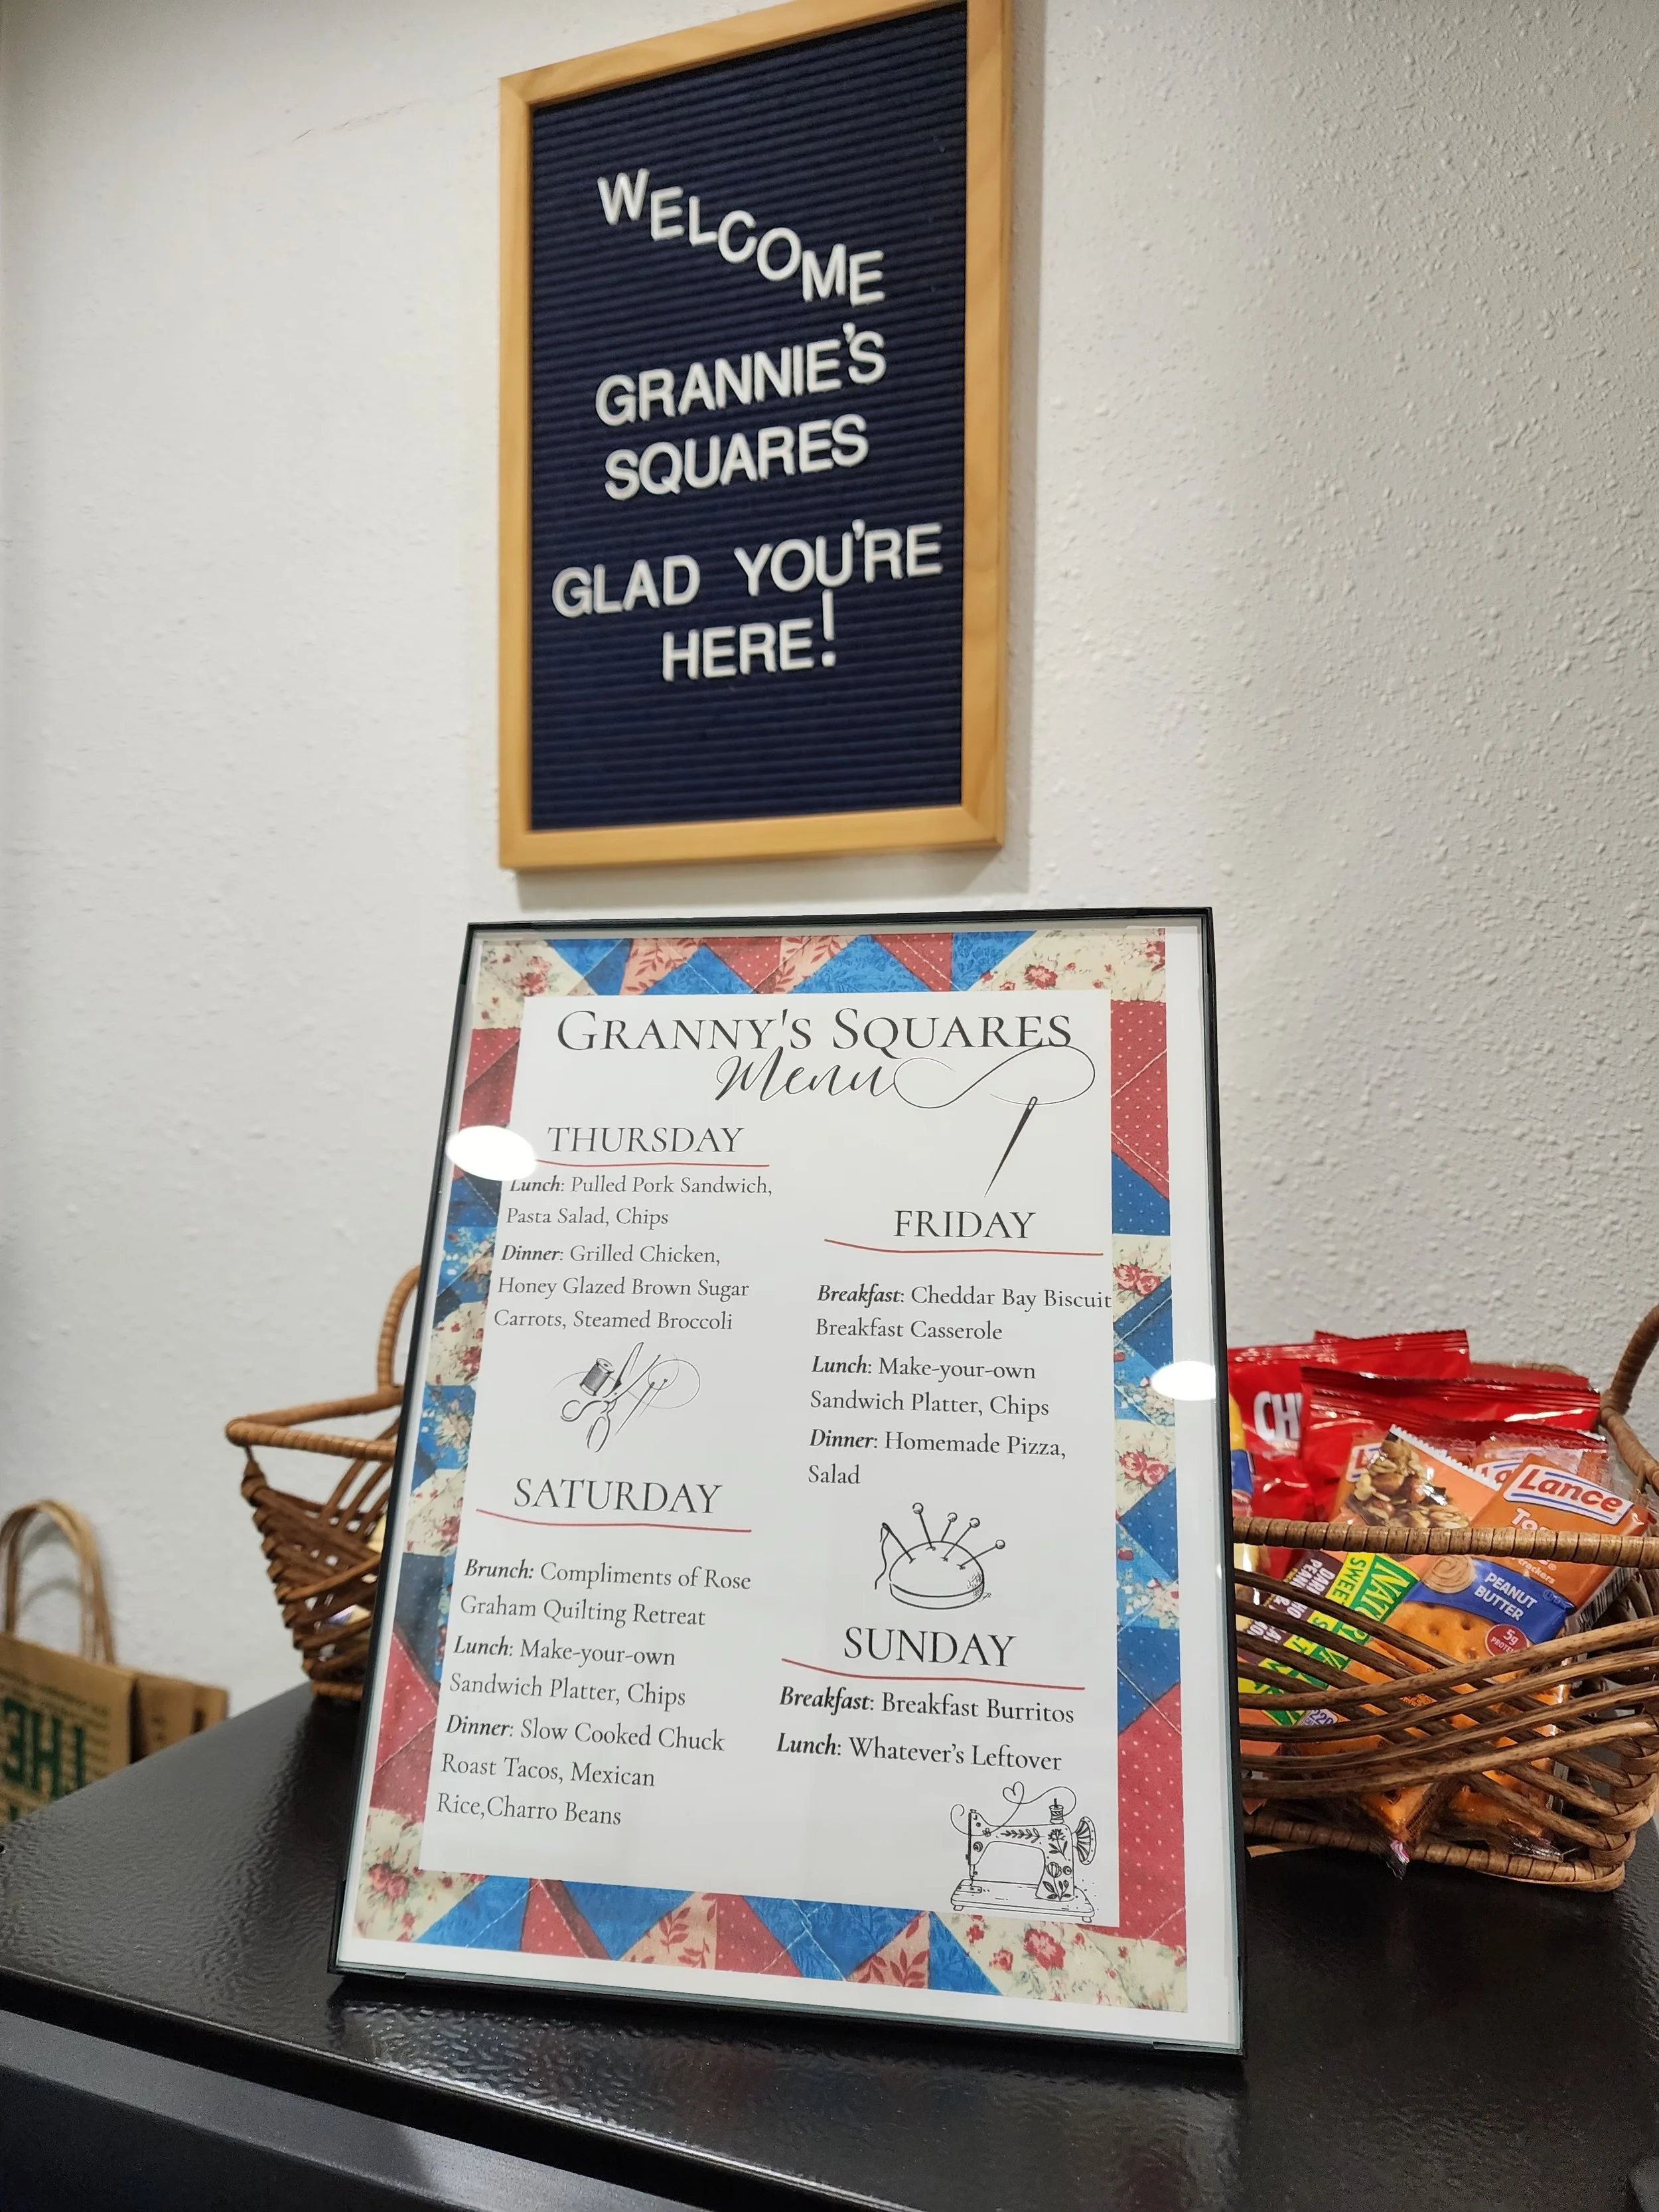 WELCOME
GRANNIE'S
SQUARES
GLAD YOU'RE
HERE!
GRANNY'S SQUARES
Menu
THURSDAY
Lunch: Pulled Pork Sandwich,
Pasta Salad, Chips
Dinner: Grilled Chicken,
Honey Glazed Brown Sugar
Carrots, Steamed Broccoli
FRIDAY
Breakfast: Cheddar Bay Biscuit
Breakfast Casserole
Lunch: Make-your-own
Sandwich Platter, Chips
Dinner: Homemade Pizza,
Salad
SATURDAY
Brunch: Compliments of Rose
Graham Quilting Retreat
Lunch: Make-your-own
Sandwich Platter, Chips
Dinner: Slow Cooked Chuck
Roast Tacos, Mexican
Rice,Charro Beans
SUNDAY
Breakfast: Breakfast Burritos
Lunch: Whatever's Leftover
Lance
PEANUT
BUTTER
5g
THE